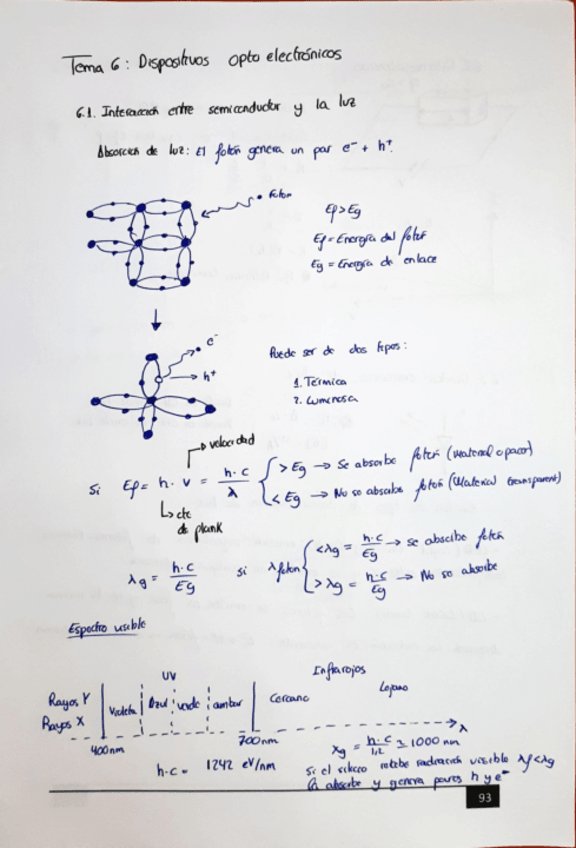 Tema 6: Dispositivos opto electrónicos
6.1. Interacción entre semiconductor y la luz
Absorción de luz: El fotón genera un par e⁻ + h⁺.
Fotón
Ef > Eg
Ef = Energía del fotón
Eg = Energía de enlace
e⁻
h⁺
Puede ser de dos tipos:
1. Térmica
2. Luminosa
velocidad
Si Ef = h · v = h·c / λ
> Eg → Se absorbe fotón (Material opaco)
< Eg → No se absorbe fotón (Material transparent)
cte de plank
λg = h·c / Eg si λfotón
< λg = h·c / Eg → Se absorbe fotón
> λg = h·c / Eg → No se absorbe
Espectro visible
UV
Infrarojos
Rayos Y
Rayos X
Violeta Azul verde ambar
Cercano Lejano
λ
400nm 700nm
λg = h·c / 1,2 ≈ 1000 nm
h·c = 1242 eV/nm
Si el silicio recibe radiación visible λf<λg
la absorbe y genera pares h y e⁻
93